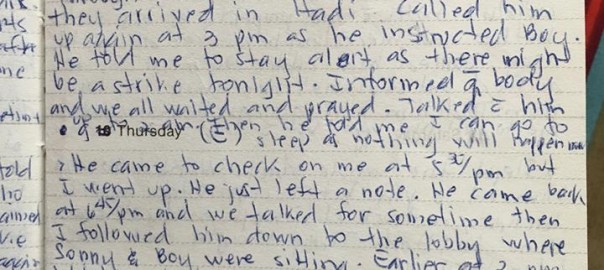 they arrived in Hadi called him
up again at 3 pm as he instructed Boy.
He told me to stay alert as there might
be a strike tonight. Informed body
and we all waited and prayed. Talked c̄ him
Thursday (E) then he told me I can go to
sleep nothing will happen now
He came to check on me at 5 35/pm but
I went up. He just left a note. He came back
at 6 45/pm and we talked for sometime then
I followed him down to the lobby where
Sonny & Boy were sitting. Earlier at